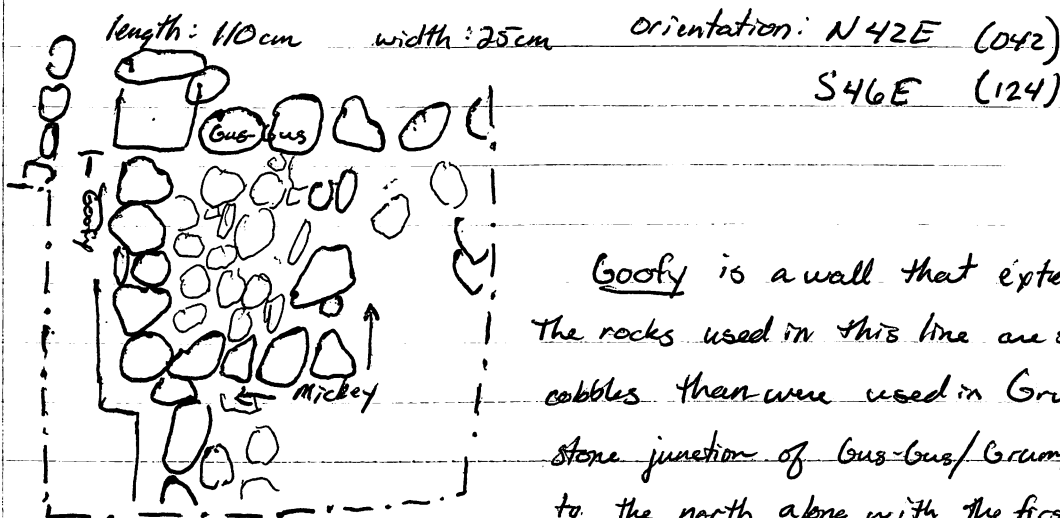 length: 110cm width: 25cm Orientation: N42E (042)
S46E (124)
Gus-Gus
Goofy
Goofy is a wall that exte
The rocks used in this line are
Mickey
cobbles than were used in Gru
stone junction of Gus-Gus/Grum
to the north along with the firs